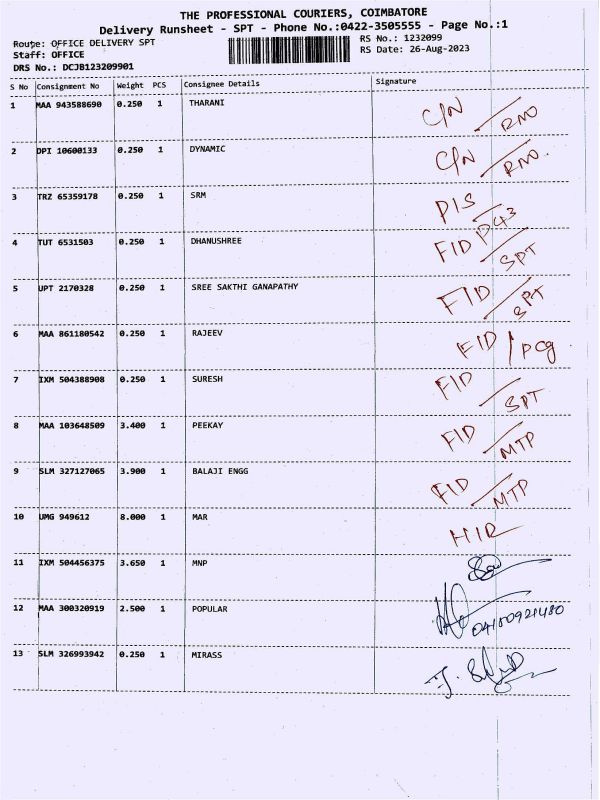 THE PROFESSIONAL COURIERS, COIMBATORE
Delivery Runsheet - SPT - Phone No.:0422-3505555 - Page No.:1
Route: OFFICE DELIVERY SPT
Staff: OFFICE
DRS No.: DCJB123209901
RS No.: 1232099
RS Date: 26-Aug-2023
S No Consignment No Weight PCS Consignee Details Signature
1 MAA 943588690 0.250 1 THARANI C/N / RNO
2 DPI 10600133 0.250 1 DYNAMIC C/N / RNO.
3 TRZ 65359178 0.250 1 SRM PIS / P43
4 TUT 6531503 0.250 1 DHANUSHREE FID / SPT
5 UPT 2170328 0.250 1 SREE SAKTHI GANAPATHY FID / SPT
6 MAA 861180542 0.250 1 RAJEEV FID / pcg
7 IXM 504388908 0.250 1 SURESH FID / SPT
8 MAA 103648509 3.400 1 PEEKAY FID / MTP
9 SLM 327127065 3.900 1 BALAJI ENGG FID / MTP
10 UMG 949612 8.000 1 MAR HIR
11 IXM 504456375 3.650 1 MNP
12 MAA 300320919 2.500 1 POPULAR
13 SLM 326993942 0.250 1 MIRASS